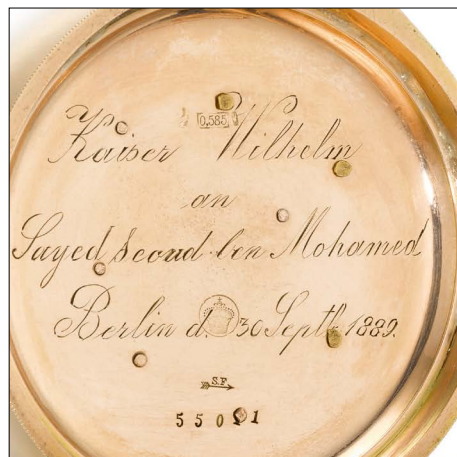 0,585
Kaiser Wilhelm
an
Sayed Seoud ben Mohamed
Berlin d. 30 Septb. 1889.
S.F.
55021